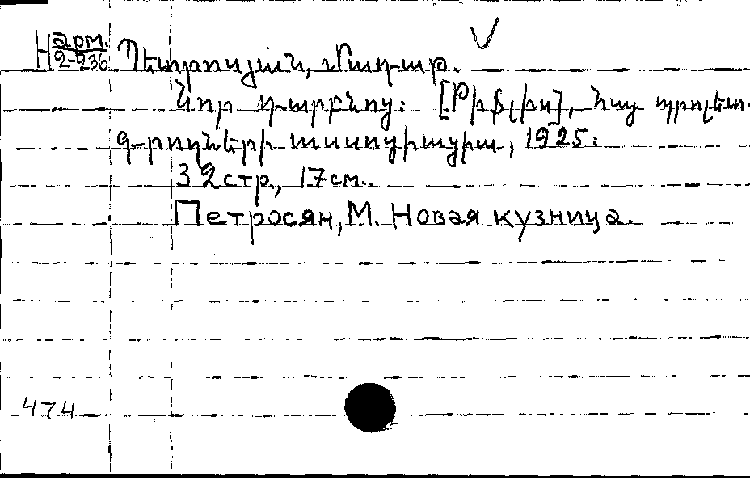 Н арм. 2-236 Պետրոսյան, Մադար.
Նոր դարբնոց: [Թիֆլիս], հայ պրոլետ.
գրողների ասոցիացիա, 1925:
32стр., 17см.
Петросян, М. Новая кузница.
474